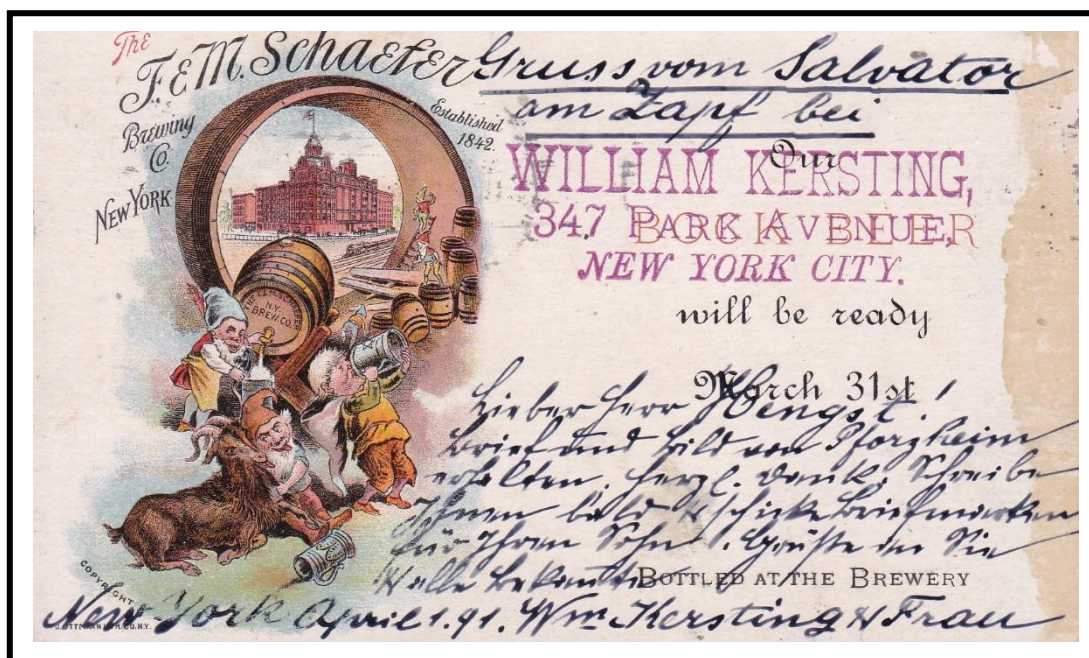 The
F. & M. Schaefer
Brewing
Co.
New York
Established
1842.
N.Y.
BREW.CO.
Gruss vom Salvator
am Zapf bei
Our
WILLIAM KERSTING,
347 PARK AVENUE,
BOCK BEER
NEW YORK CITY.
will be ready
March 31st
Lieber Herr Hengst!
Brief und Bild von Pforzheim
erhalten. Herzl. Dank. Schreibe
Ihnen bald & schicke Briefmarken
für Ihren Sohn. Grüße an Sie
& alle Bekannte
BOTTLED AT THE BREWERY
COPYRIGHT
New-York April 1.91. Wm. Kersting & Frau
J. OTTMANN LITH. CO. N.Y.